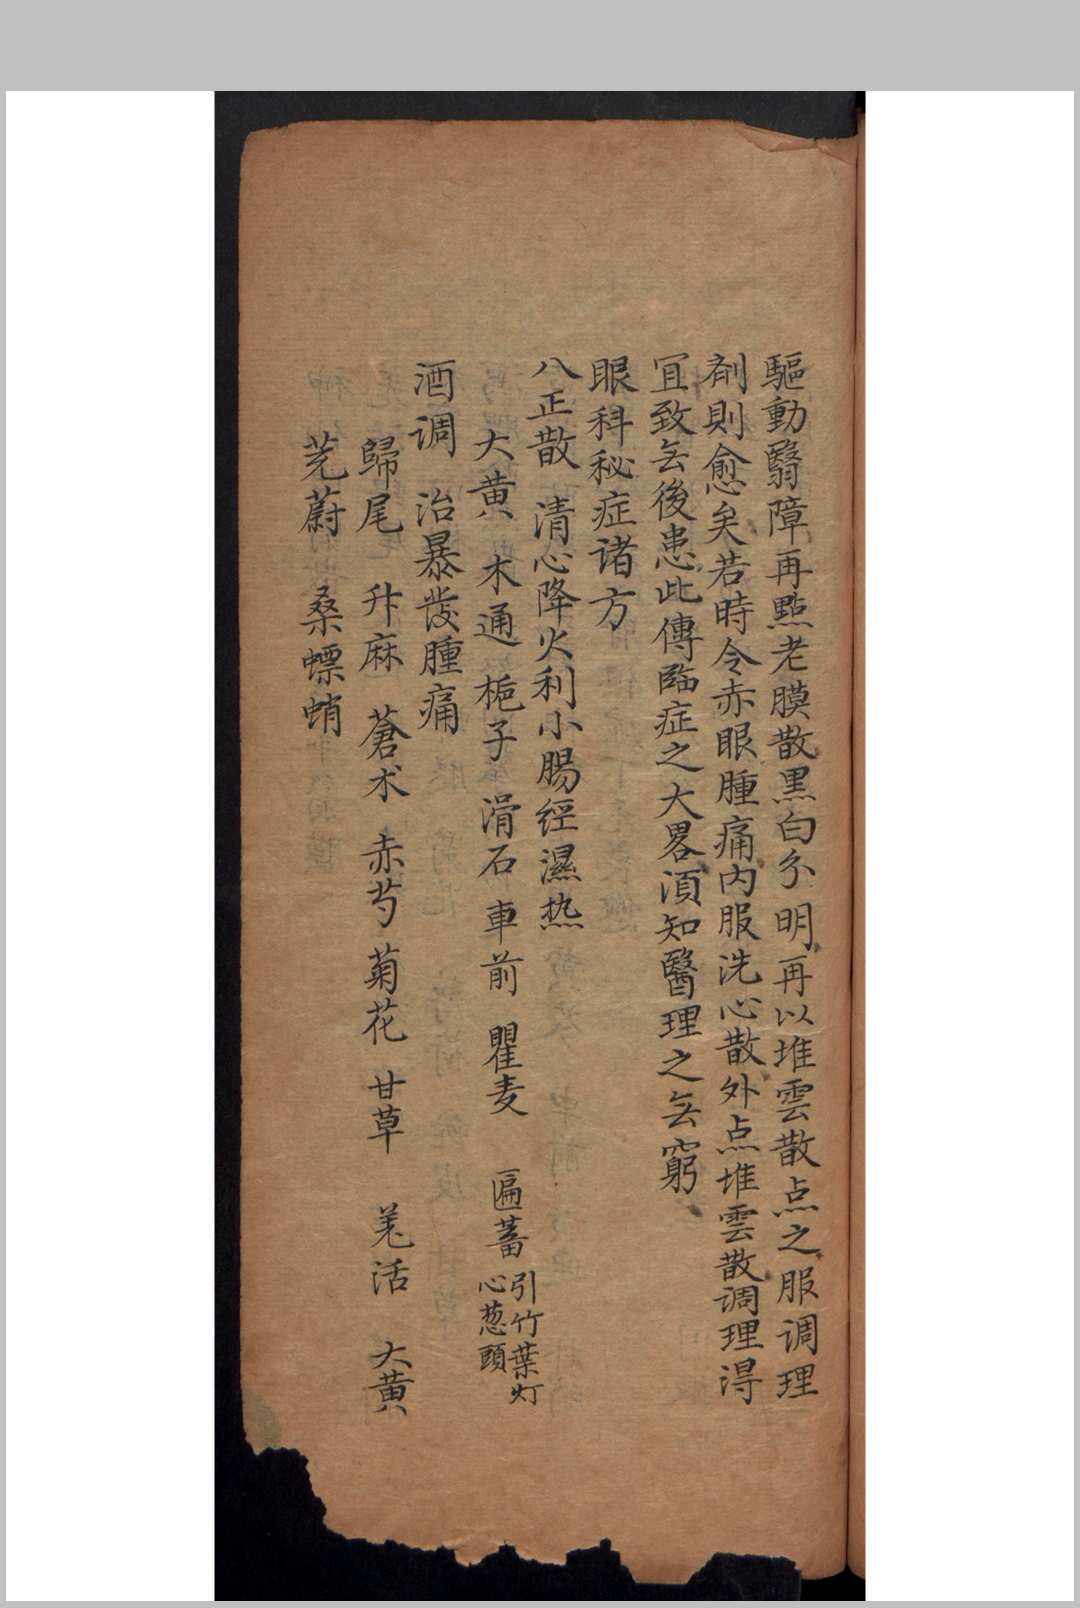 驅動翳障再點老膜散黑白分明再以堆雲散点之服调理
剤則愈矣若時令赤眼腫痛内服洗心散外点堆雲散调理得
宜致无後患此傳臨症之大畧湏知醫理之无窮
眼科秘症诸方
八正散 清心降火利小腸經濕热
大黄 木通 梔子 滑石 車前 瞿麦 匾蓄 引竹葉灯
心葱頭
酒调 治暴发腫痛
歸尾 升麻 蒼术 赤芍 菊花 甘草 羌活 大黄
茺蔚 桑螵蛸